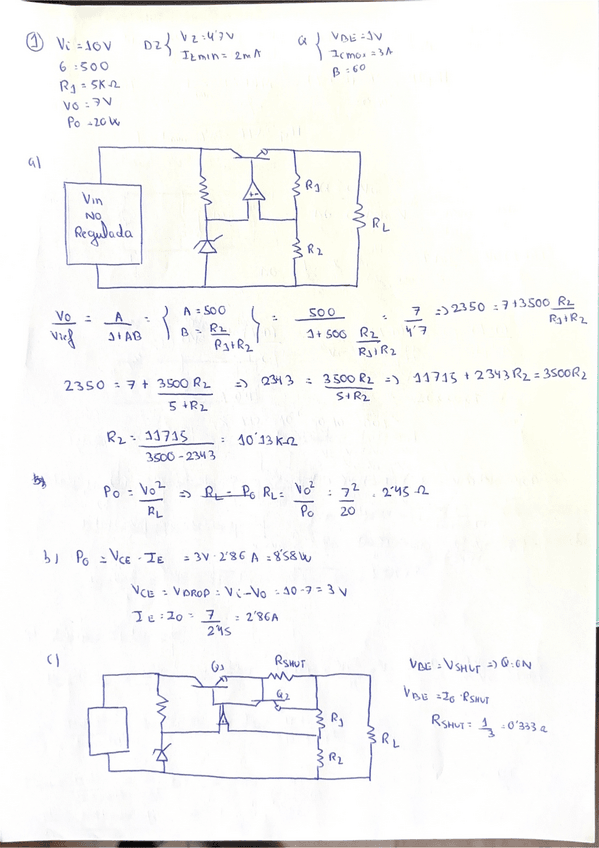 ① Vi = 10V DZ { Vz = 4'7V Q { VBE = 1V
Izmin = 2mA Icmax = 3A
G : 500 B : 60
R1 = 5KΩ
Vo = 7V
Po = 20W
a)
Vin
NO
Regulada
R1
R2
RL
Vo/Vref = A/1+AB = { A = 500 B = R2/R1+R2 } = 500/1+500 R2/R1+R2 = 7/4'7 => 2350 = 7+3500 R2/R1+R2
2350 = 7 + 3500 R2/5+R2 => 2343 = 3500 R2/5+R2 => 11715 + 2343 R2 = 3500R2
R2 = 11715/3500-2343 = 10'13 KΩ
Po = Vo²/RL => RL = Po RL = Vo²/Po = 7²/20 = 2'45 Ω
b) Po = VCE · IE = 3V · 2'86 A = 8'58W
VCE = VDROP = Vi - Vo = 10 - 7 = 3V
IE = Io = 7/2'45 = 2'86A
c)
Q1 RSHUT
Q2
R1
R2
RL
VBE = VSHUT => Q=ON
VBE = Io · RSHUT
RSHUT = 1/3 = 0'333 Ω